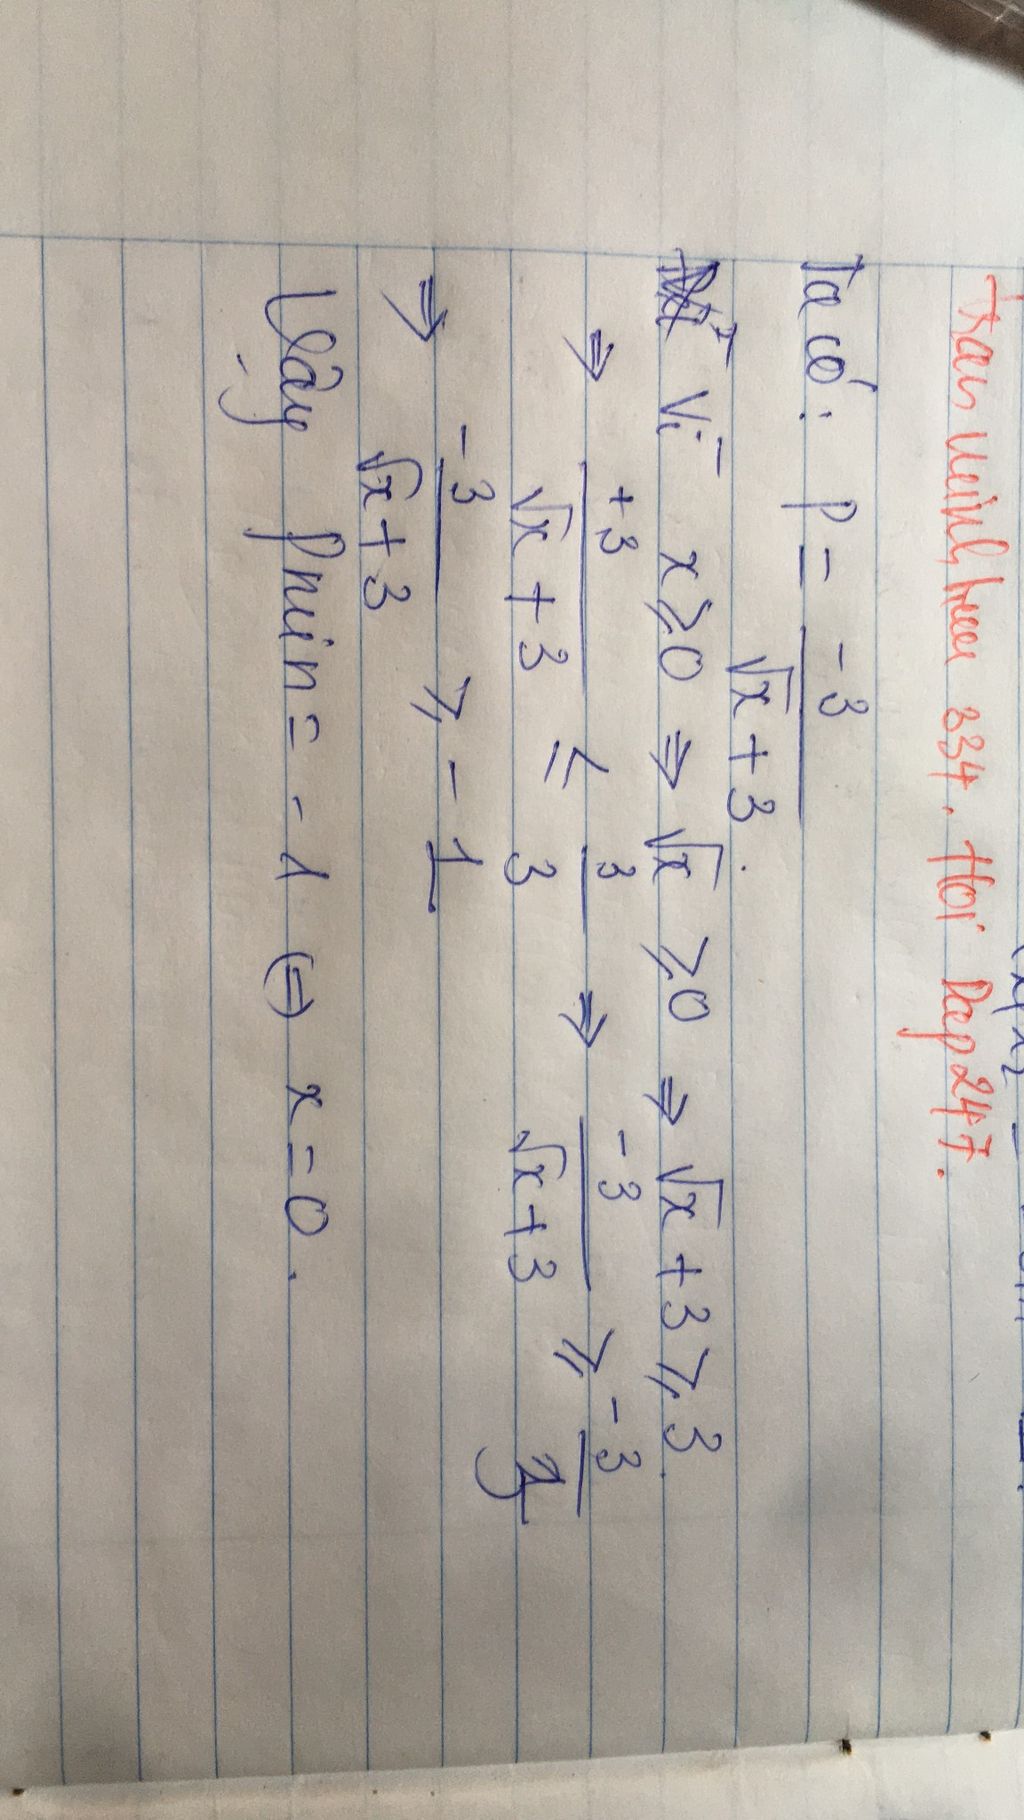 tranvninhhuu 334. Hoi Dap 247.
Ta có: P = -3/(√x + 3).
Vì x ≥ 0 ⇒ √x ≥ 0 ⇒ √x + 3 ≥ 3.
⇒ +3/(√x + 3) ≤ 3/3 ⇒ -3/(√x + 3) ≥ -3/3
⇒ -3/(√x + 3) ≥ -1
Vậy Pmin = -1 ⇔ x = 0.